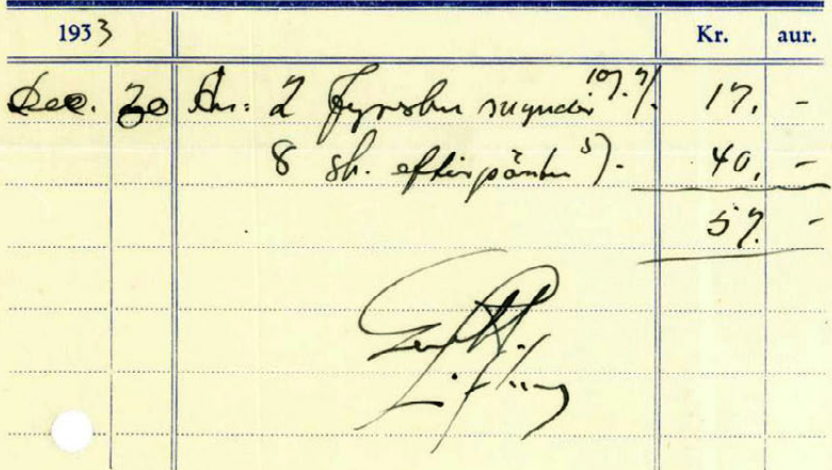 1933 Kr. aur.
Dec. 20 An: 2 fyrstu myndir 10/7/. 17. -
8 stk. eftirpöntun 5/- 40. -
57. -